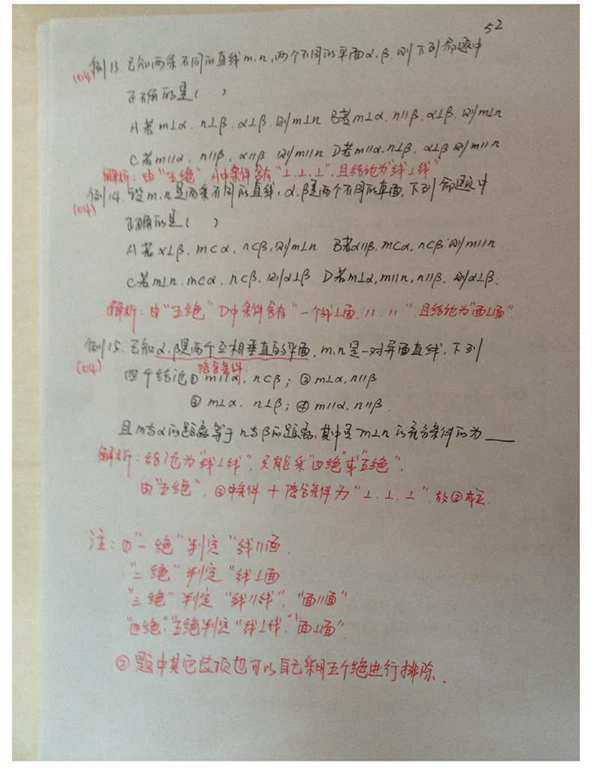 52
例13. 已知两条不同的直线m.n,两个不同的平面α.β,则下列命题中
(104)
正确的是( )
A若m⊥α. n⊥β. α⊥β. 则m⊥n B若m⊥α, n∥β, α⊥β. 则m⊥n
C若m∥α. n∥β, α∥β 则m∥n D若m∥α. n⊥β, α⊥β 则m∥n
解析: 由"五绝" A中条件含有"⊥.⊥.⊥",且结论为"线⊥线"
例14. 设m.n是两条不同的直线, α.β是两个不同的平面, 下列命题中
(104)
正确的是( )
A若α⊥β. m⊂α, n⊂β, 则m⊥n B若α∥β, m⊂α, n⊂β 则m∥n
C若m⊥n. m⊂α, n⊂β, 则α⊥β D若m⊥α, m∥n, n∥β. 则α⊥β.
解析: 由"五绝" D中条件含有"一个线⊥面. ∥. ∥", 且结论为"面⊥面"
例15. 已知α.β是两个互相垂直的平面, m.n是一对异面直线, 下列
(104)
隐含条件
四个结论① m∥α, n⊂β; ② m⊥α, n∥β
③ m⊥α. n⊥β; ④ m∥α. n∥β.
且m与α的距离等于n与β的距离,其中是m⊥n的充分条件的为____
解析: 结论为"线⊥线", 只能采"四绝"或"五绝".
由"五绝", ③中条件 + 隐含条件为"⊥.⊥.⊥". 故③
注: ①"一绝"判定"线∥面.
"二绝"判定"线⊥面
"三绝"判定"线∥线", "面∥面"
"四绝","五绝判定"线⊥线","面⊥面"
② 题中其它选项也可以自己采用五个绝进行排除.